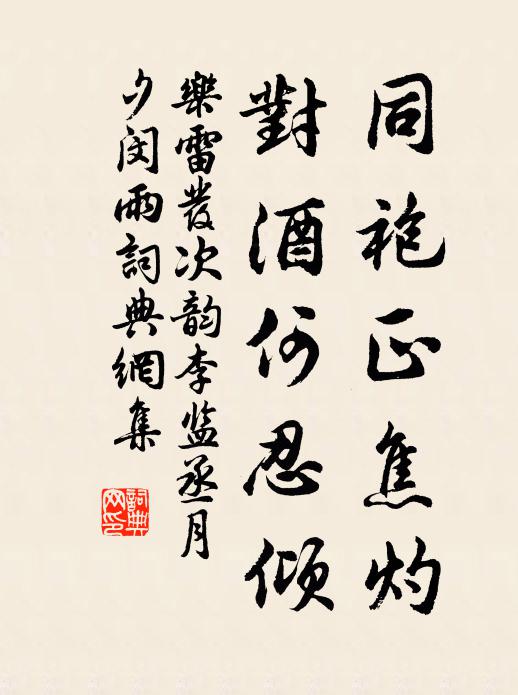 同袍正焦灼
對酒何忍傾
樂雷發次韵李监丞月
夕闵雨詞典網集
詞典網印